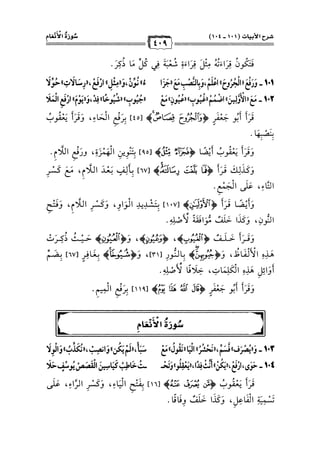 شرح الأبيات (١٠١ - ١٠٤)
٤٠٩
سُورَةُ الأَنْعَامِ
فَتَكُونُ قِرَاءَتُهُ مِثْلَ قِرَاءَةِ شُعْبَةَ فِي كُلِّ مَا ذُكِرَ.
١٠١ - وَرَفْعَ الْجُرُوحَ اعْلَمْ، وَبِالنَّصْبِ مَعْ جَزَا ءُ نَوِّنْ، وَمِثْلِ ارْفَعْ، رِسَالَاتِ حُوِّلَا
١٠٢ - مَعَ الْأَوَّلِينَ اضْمُمْ غُيُوبِ عُيُونِ مَعْ جُيُوبِ شُيُوخًا فِدْ، وَيَوْمُ ارْفَعِ الْمَلَا
قَرَأَ أَبُو جَعْفَرٍ ﴿وَالْجُرُوحُ قِصَاصٌ﴾ [٤٥] بِرَفْعِ الْحَاءِ، وَقَرَأَ يَعْقُوبُ
بِنَصْبِهَا.
وَقَرَأَ يَعْقُوبُ أَيْضًا ﴿فَجَزَاءٌ مِثْلُ﴾ [٩٥] بِتَنْوِينِ الْهَمْزَةِ، وَرَفْعِ اللَّامِ.
وَكَذَلِكَ قَرَأَ ﴿فَمَا بَلَّغْتَ رِسَالَتِهِ﴾ [٦٧] بِأَلِفٍ بَعْدَ اللَّامِ، مَعَ كَسْرِ
التَّاءِ، عَلَى الْجَمْعِ.
وَأَيْضًا قَرَأَ ﴿الْأَوَّلِينَ﴾ [١٠٧] بِتَشْدِيدِ الْوَاوِ، وَكَسْرِ اللَّامِ، وَفَتْحِ
النُّونِ، وَكَذَا خَلَفٌ مُوَافَقَةً لِأَصْلِهِ.
وَقَرَأَ خَلَفٌ ﴿الْغُيُوبِ﴾، ﴿وَعُيُونٍ﴾، وَ﴿الْعُيُونِ﴾ حَيْثُ ذُكِرَتْ
هَذِهِ الْأَلْفَاظُ، وَ﴿جُيُوبِهِنَّ﴾ بِالنُّورِ [٣١]، وَ﴿شُيُوخًا﴾ بِغَافِرٍ [٦٧] بِضَمِّ
أَوَائِلِ هَذِهِ الْكَلِمَاتِ، خِلَافًا لِأَصْلِهِ.
وَقَرَأَ أَبُو جَعْفَرٍ ﴿قَالَ اللَّهُ هَذَا يَوْمُ﴾ [١١٩] بِرَفْعِ الْمِيمِ.
سُورَةُ الأَنْعَامِ
١٠٣ - وَيُصْرَفْ فَسَمِّ، نَحْشُرُ الْيَا نَقُولُ مَعْ سَبَأْ، لَمْ يَكُنْ وَانْصِبْ، نُكَذِّبُ وَالْوِلَا
١٠٤ - حَوَى، ارْفَعْ، يَكُنْ أَنِّثْ فِدًا، يَعْقِلُو وَتَحْـ ـتُ خَاطِبْ كَيَاسِينَ الْقَصَصْ يُوسُفٍ حَلَا
قَرَأَ يَعْقُوبُ ﴿مَنْ يُصْرَفْ عَنْهُ﴾ [١٦] بِفَتْحِ الْيَاءِ، وَكَسْرِ الرَّاءِ، عَلَى
تَسْمِيَةِ الْفَاعِلِ، وَكَذَا خَلَفٌ وِفَاقًا.